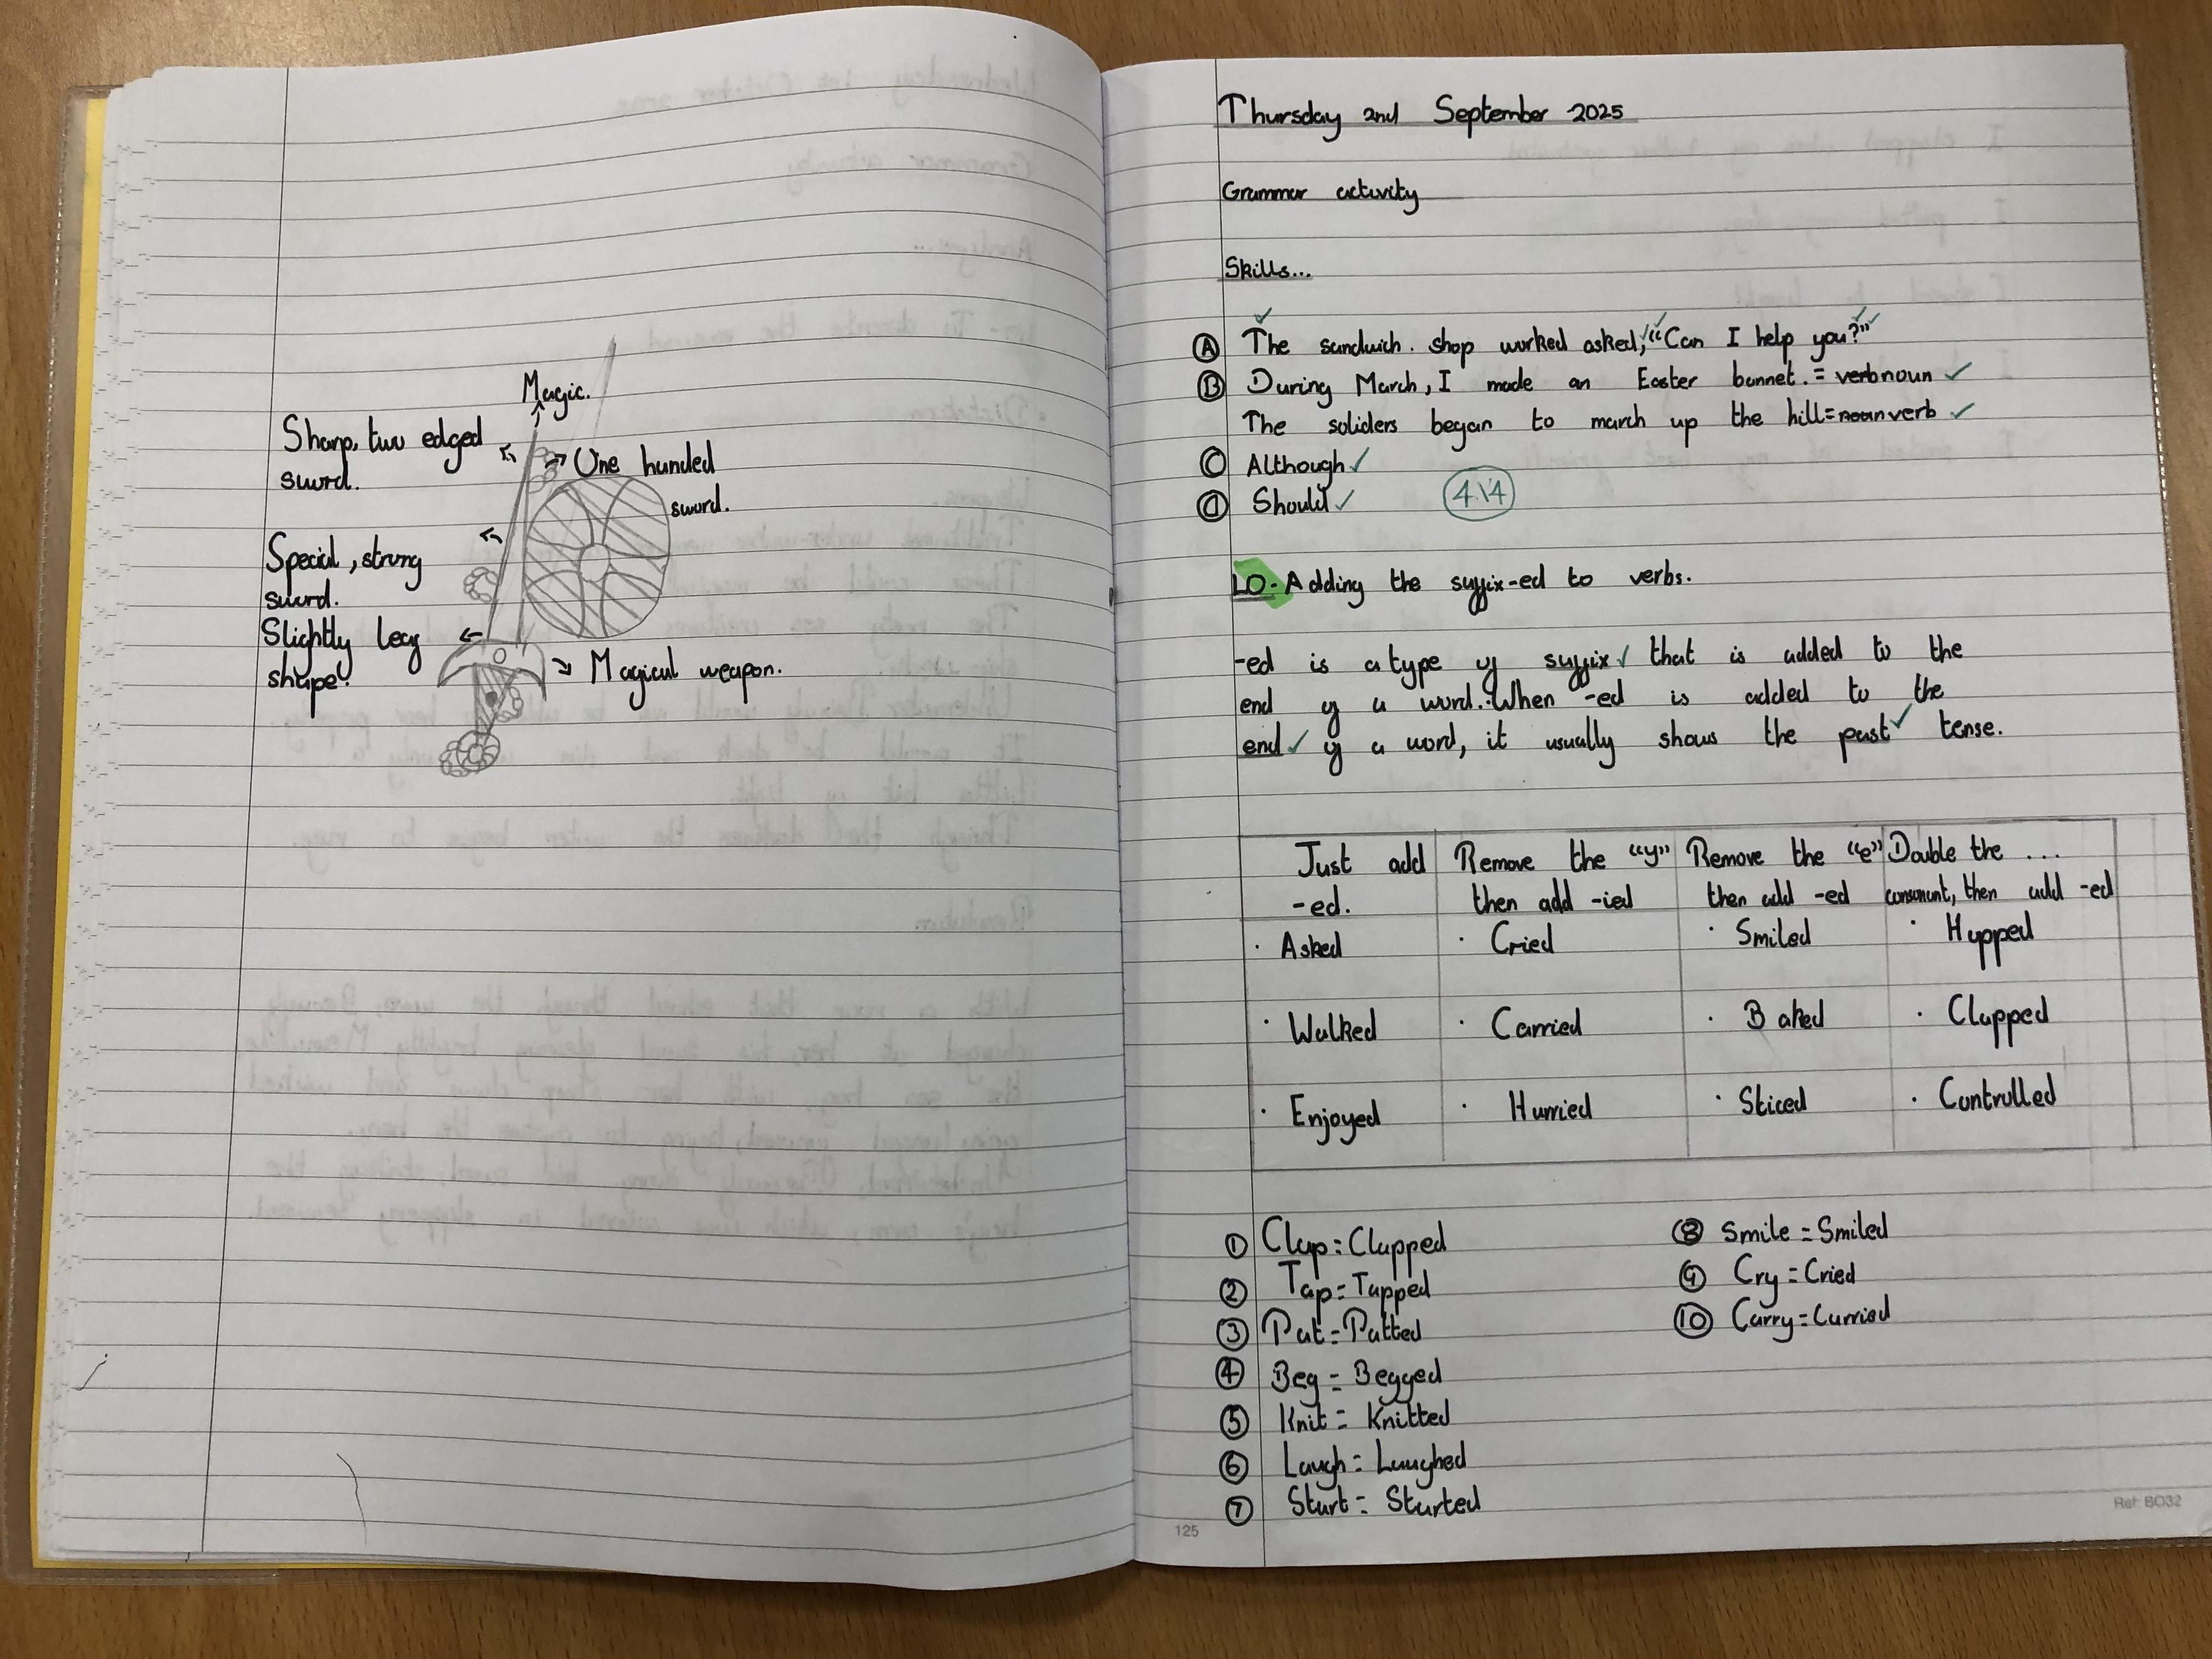 Magic.
Sharp, two edged
sword.
One handed
sword.
Special, strong
sword.
Slightly leg
shape.
Magical weapon.
Thursday 2nd September 2025
Grammar activity
Skills...
A The sandwich. shop worked asked, "Can I help you?"
B During March, I made an Easter bonnet. = verb noun
The soliders began to march up the hill = noun verb
C Although
D Should
4\4
LO- Adding the suffix -ed to verbs.
-ed is a type of suffix that is added to the
end of a word. When -ed is added to the
end of a word, it usually shows the past tense.
Just add
-ed.
Asked
Walked
Enjoyed
Remove the "y"
then add -ied
Cried
Carried
Hurried
Remove the "e"
then add -ed
Smiled
Baked
Sliced
Double the ...
consonant, then add -ed
Hopped
Clapped
Controlled
1 Clap = Clapped
2 Tap = Tapped
3 Pat = Patted
4 Beg = Begged
5 Knit = Knitted
6 Laugh = Laughed
7 Start = Started
8 Smile = Smiled
9 Cry = Cried
10 Carry = Carried
125
Ref: BO32